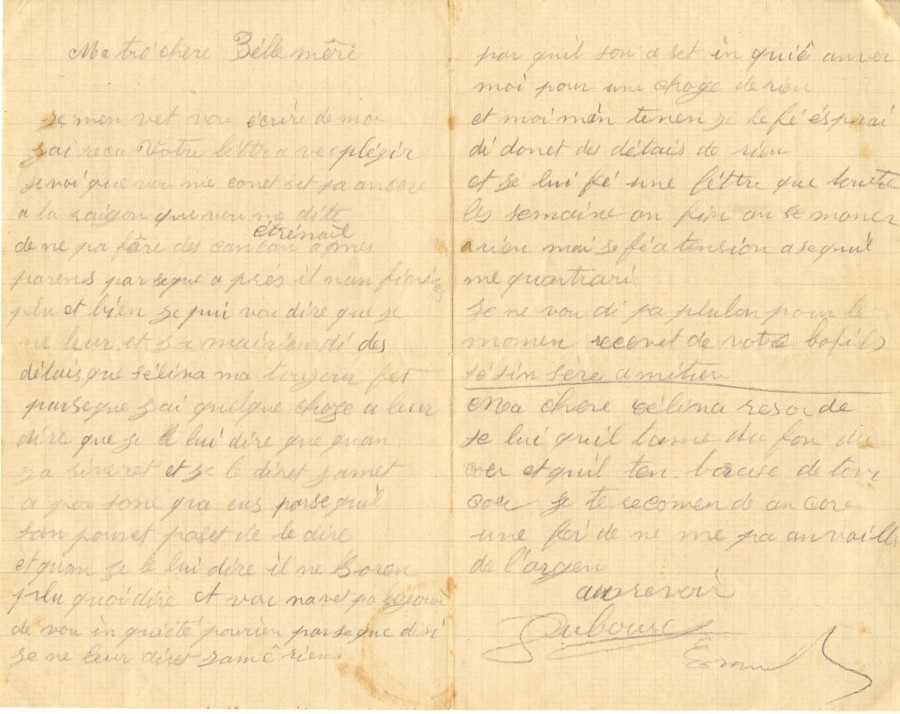 Ma tré chere Bélle mére
Je men vet vou écrire de mo
J'ai recu Votre léttre avec plézir
Je voi que vou me conet set pa ancore
a la raigon que vou me ditte
de ne pa fâre des cancan a mes
parens parseque a prés il nan fini
plu et bien je pui vou dire que je
ne leur et ja mai rien di des
détais que sélina ma toujour fet
parseque j'ai quelque choze a leur
dire que je le lui dire que quan
sa rivret et je le diret jamet
a per sone pra ens parse quil
san pouret paset de le dire
et quan je le lui dire il ne soron
plu quoi dire A vou navet pa bejouin
de vou in quiété pourien parseque disi
je ne leur diret jamê rien
par quil son a set in quiê anver
moi pour une choge de rien
et moi mén tenen je le fé ésprai
di donet des détais de rien
et je lui fé une léttre que toutte
les semaine an fin an se moner
a rien mai je fé a tension a se quil
me quontrari
Je ne vou di pa plulon pour le
momen recevet de votre bofils
sé sin sere amitien
Ma chere célina resoi de
se lui qui tame du fon du
coer et quil ten brasse de tou
coer je te recomende an core
une foi de ne me pa anvoille
de l'argen
au revoir
Dubourg